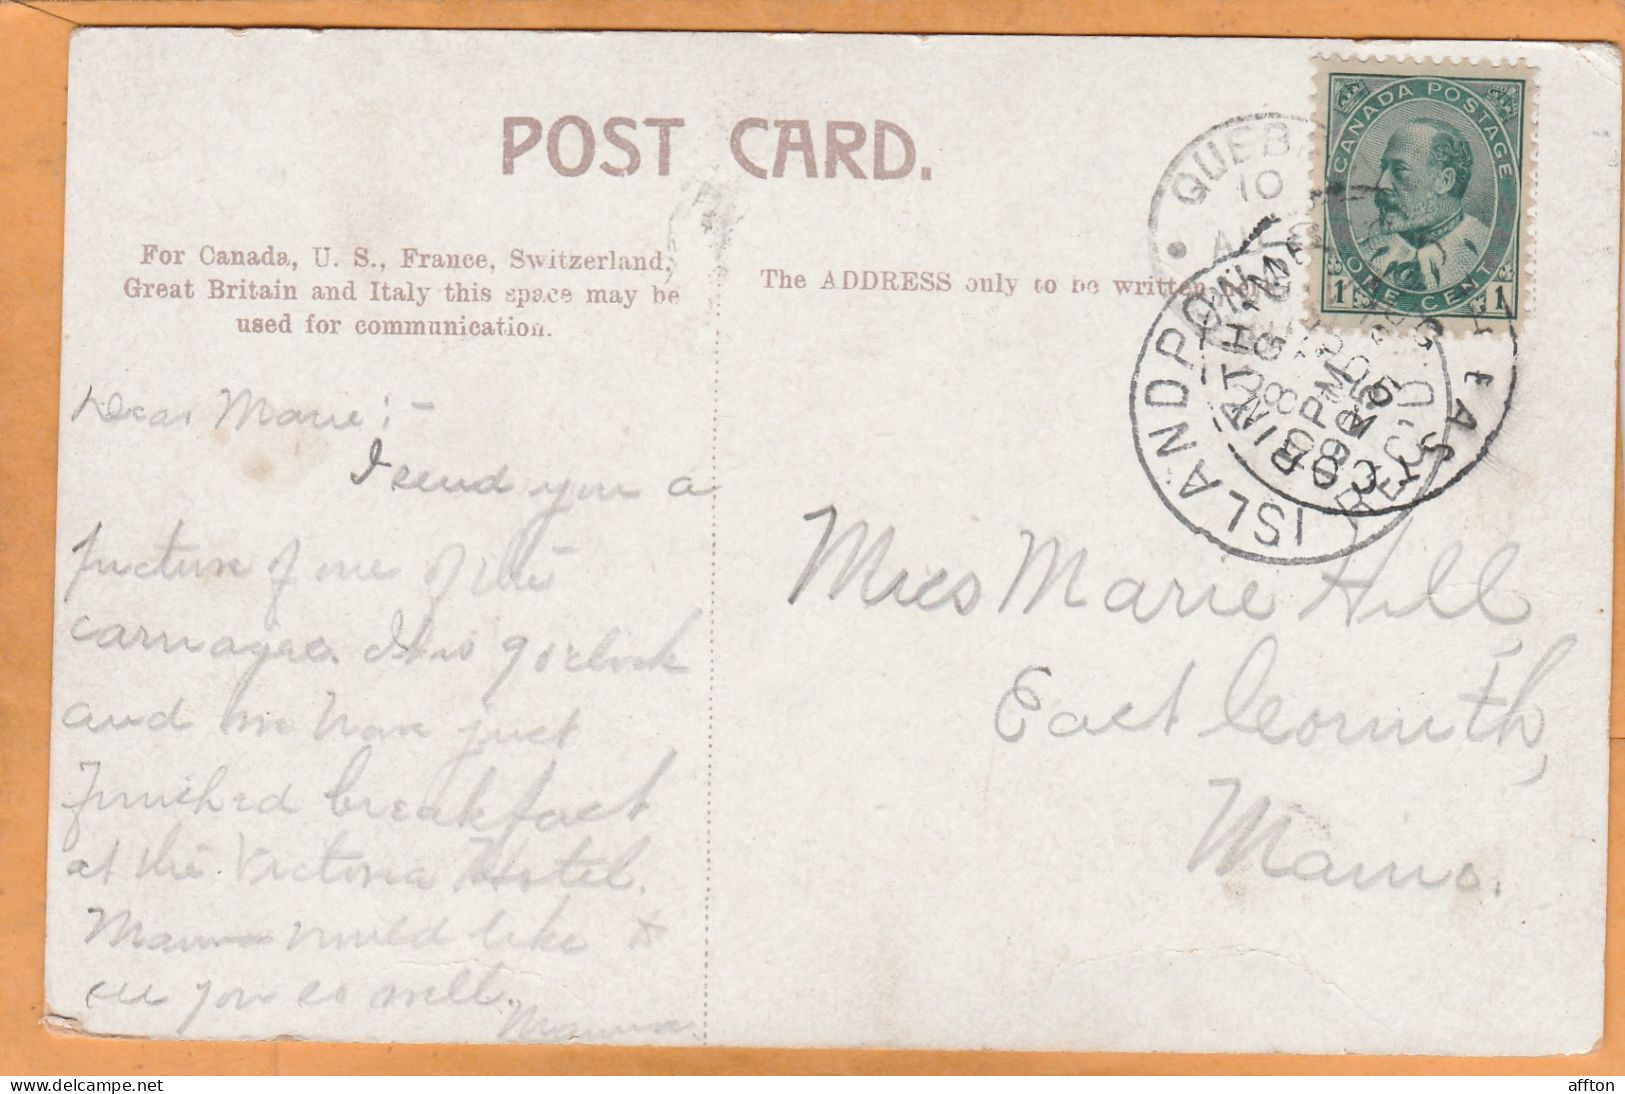 POST CARD.
For Canada, U. S., France, Switzerland,
Great Britain and Italy this space may be
used for communication.
The ADDRESS only to be written here.
CANADA POSTAGE
ONE CENT
1 1
QUEB
10
AU
ISLAND POND
REC'D
Dear Marie:-
I send you a
picture of one of the
carriages. It is 9 o'clock
and we have just
finished breakfast
at the Victoria Hotel.
Mamma would like to
see you so well.
Mamma
Miss Marie Hill,
East Corinth,
Maine.
affton